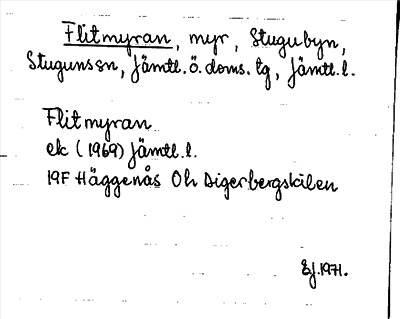 Flitmyran, myr, Stugubyn,
Stuguns sn, Jämtl. ö. doms. tg, Jämtl. l.
Flitmyran
ek (1969) Jämtl. l.
19F Häggenås Oh Digerbergskilen
EJ. 1971.